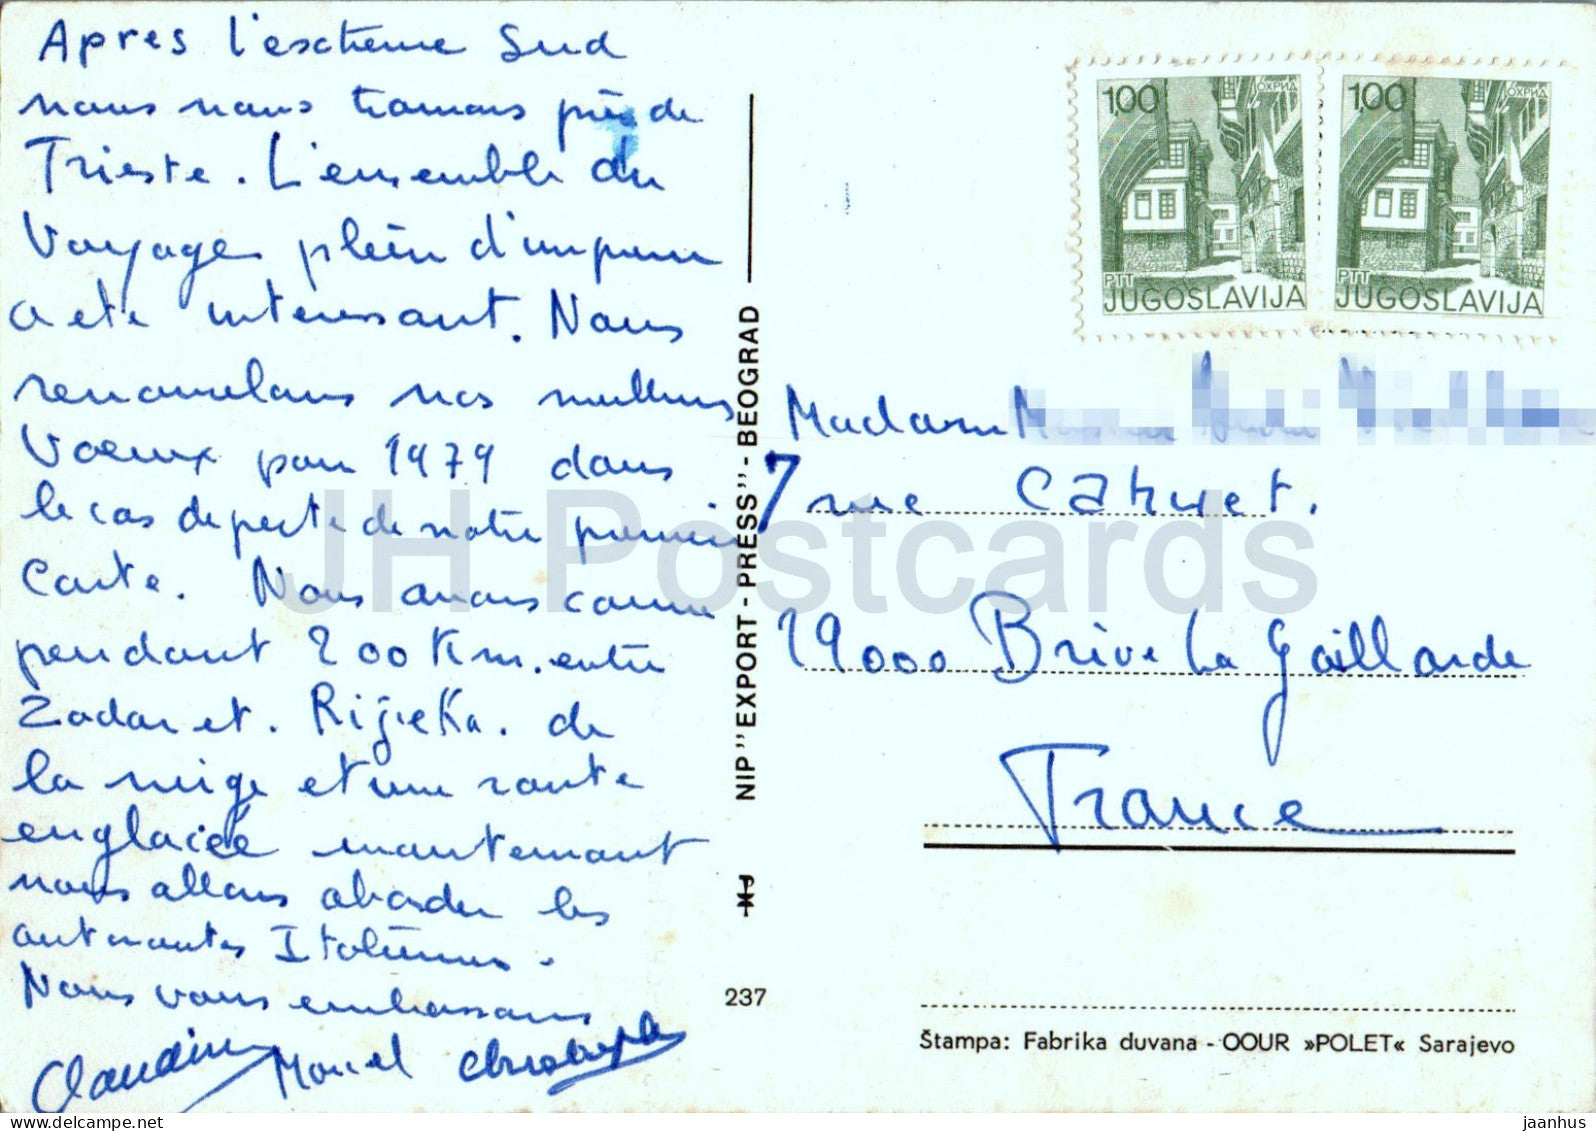 Apres l'exteme Sud
nous nous trouvons près de
Trieste. L'ensemble du
Voyage plein d'imprevu
a ete interessant. Nous
renouvelons nos meilleurs
Voeux pour 1979 dans
le cas de perte de notre premiere
Carte. Nous avons connu
pendant 200 Km. entre
Zadar et. Rijeka. de
la neige et une route
englacée maintenant
nous allons aborder les
autoroutes Italiennes.
Nous vous embrassons
Claudine Marcel Christophe
NIP "EXPORT - PRESS" - BEOGRAD
237
1,00 ОХРИД
PTT
JUGOSLAVIJA
1,00 ОХРИД
PTT
JUGOSLAVIJA
Madame
7 rue
19000 Brive La Gaillarde
France
Štampa: Fabrika duvana - OOUR »POLET« Sarajevo
JH Postcards
delcampe.net
jaanhus